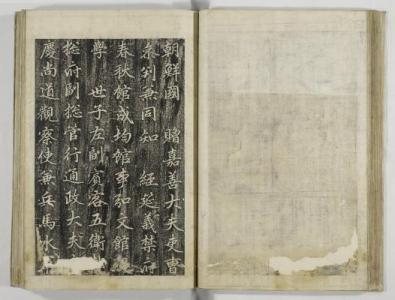 朝鮮國 贈嘉善大夫吏曹
叅判兼同知 經筵義禁府
春秋館成均館事弘文館
學 世子左副賓客五衛
摠府副摠官行通政大夫
慶尚道觀察使兼兵馬水